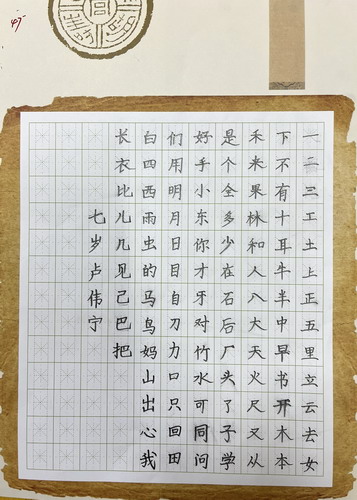 一二三工土上正五里立云去女
下不有十耳牛羊中早书开木本
禾来果林和人八大天火尺又从
是个全多少在石后厂头了子学
好手小东你才牙对竹水可同问
们用明月日目自刀力口只回田
白四西雨虫的马鸟妈山出心我
长衣比儿几见己巴把
七岁卢伟宁